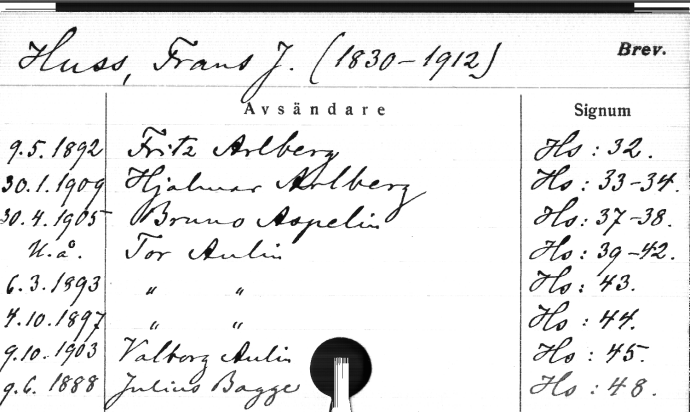 Huss, Frans J. (1830-1912) Brev.
Avsändare Signum
9.5.1892 Fritz Arlberg Hs: 32.
30.1.1909 Hjalmar Arlberg Hs: 33-34.
30.4.1905 Bruno Aspelin Hs: 37-38.
U.å. Tor Aulin Hs: 39-42.
6.3.1893 " " Hs: 43.
4.10.1897 " " Hs: 44.
9.10.1903 Valborg Aulin Hs: 45.
9.6.1888 Julius Bagge Hs: 48.